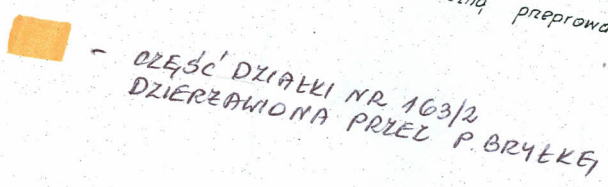 preprowa
- CZĘŚĆ DZIAŁKI NR 163/2
DZIERŻAWIONA PRZEZ P. BRYŁKĘ